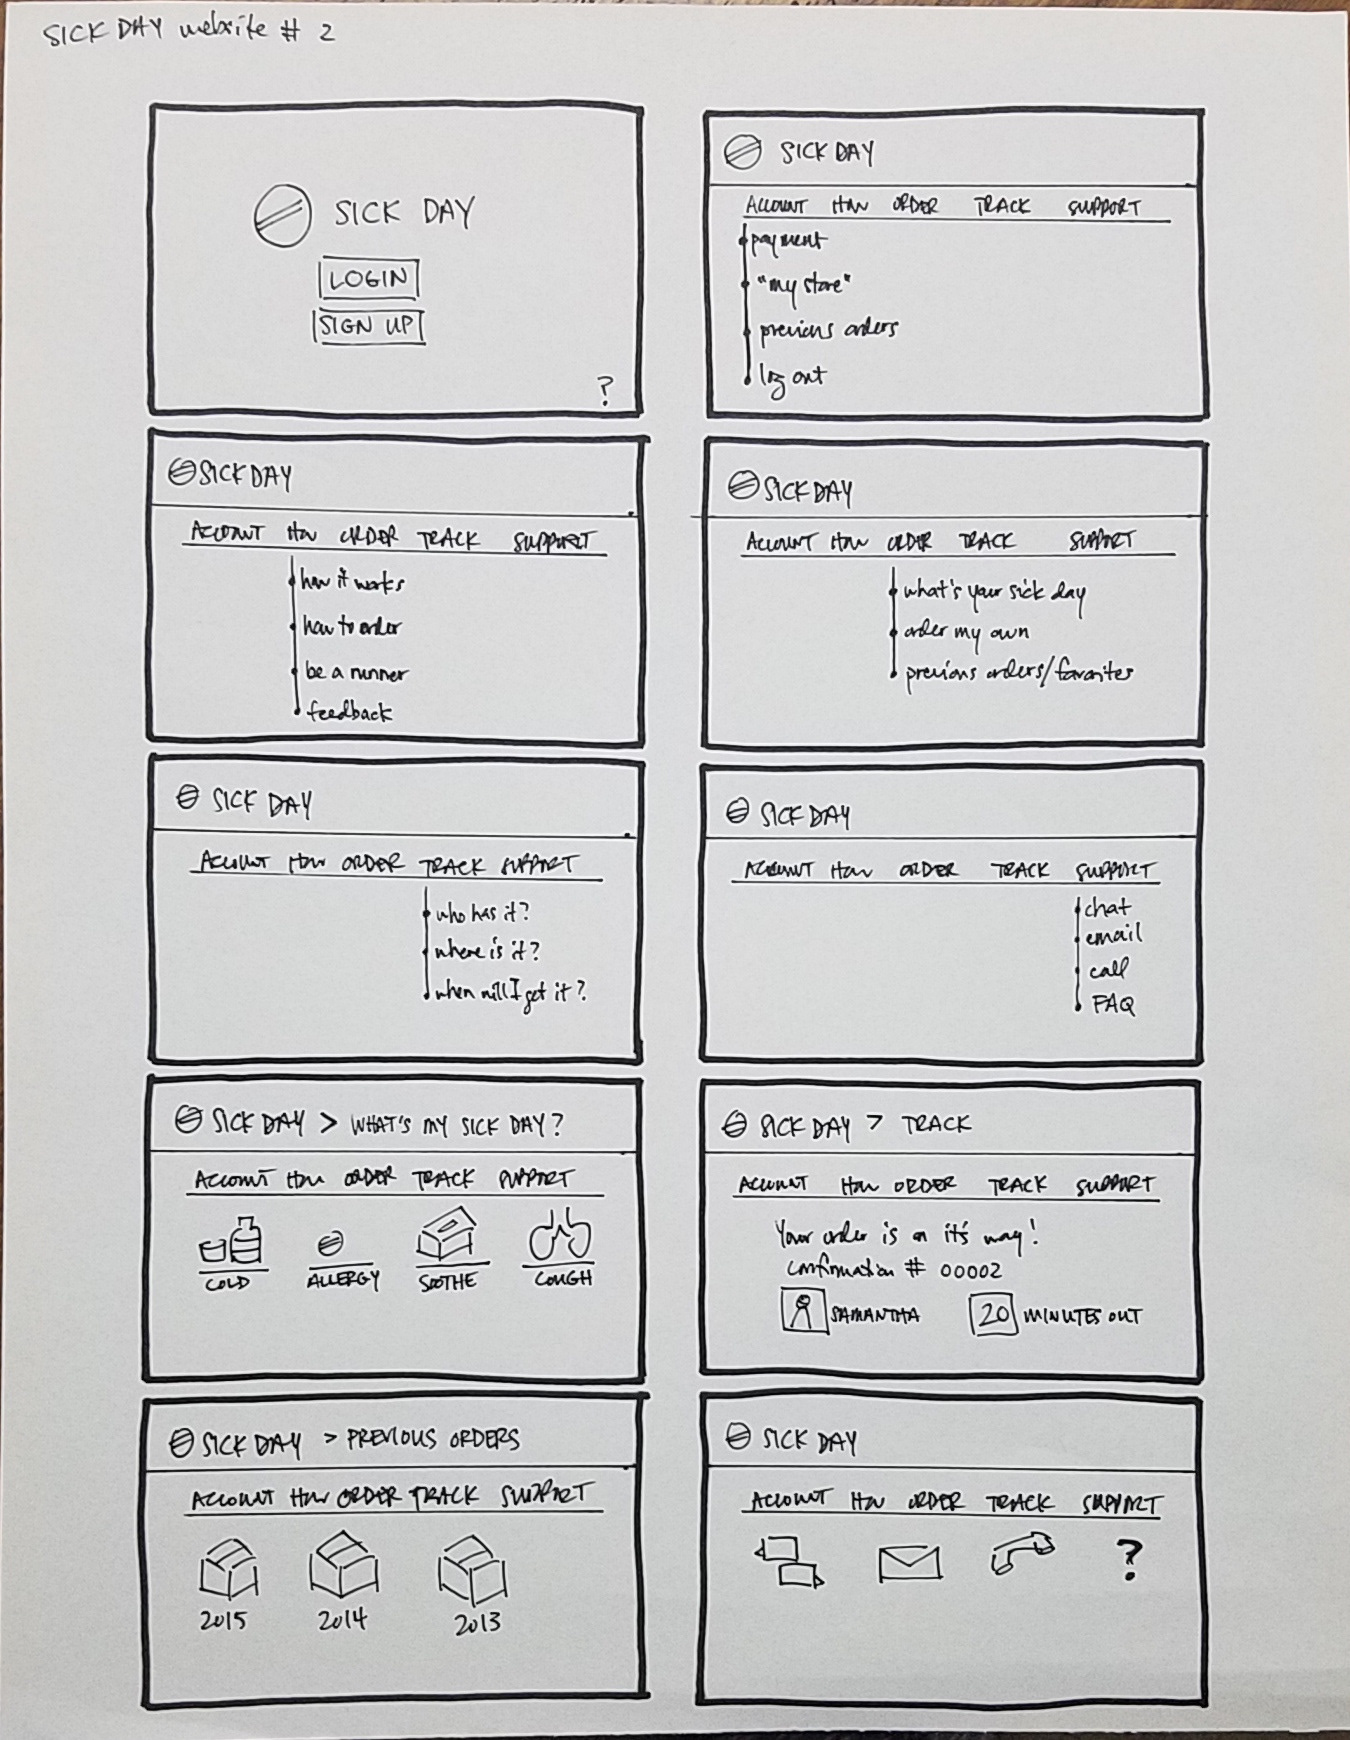 SICK DAY website # 2
SICK DAY
LOGIN
SIGN UP
?
SICK DAY
ACCOUNT How ORDER TRACK SUPPORT
payment
"my store"
previous orders
log out
SICK DAY
ACCOUNT How ORDER TRACK SUPPORT
how it works
how to order
be a runner
feedback
SICK DAY
ACCOUNT How ORDER TRACK SUPPORT
what's your sick day
order my own
previous orders/favorites
SICK DAY
ACCOUNT How ORDER TRACK SUPPORT
who has it?
where is it?
when will I get it?
SICK DAY
ACCOUNT How ORDER TRACK SUPPORT
chat
email
call
FAQ
SICK DAY > WHAT'S MY SICK DAY?
ACCOUNT How ORDER TRACK SUPPORT
COLD ALLERGY SOOTHE COUGH
SICK DAY > TRACK
ACCOUNT How ORDER TRACK SUPPORT
Your order is on it's way!
Confirmation # 00002
SAMANTHA 20 MINUTES OUT
SICK DAY > PREVIOUS ORDERS
ACCOUNT How ORDER TRACK SUPPORT
2015 2014 2013
SICK DAY
ACCOUNT How ORDER TRACK SUPPORT
?